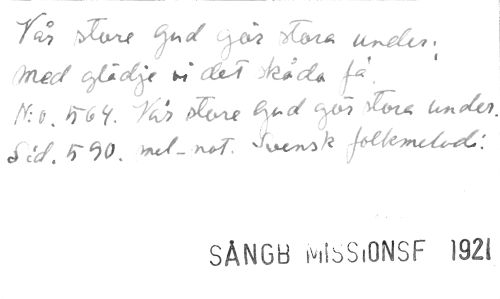 Vår store Gud gör stora under;
med glädje vi det skåda få.
N:o. 564. Vår store Gud gör stora under.
Sid. 590. mel-not. Svensk folkmelodi.
SÅNGB MISSIONSF 1921